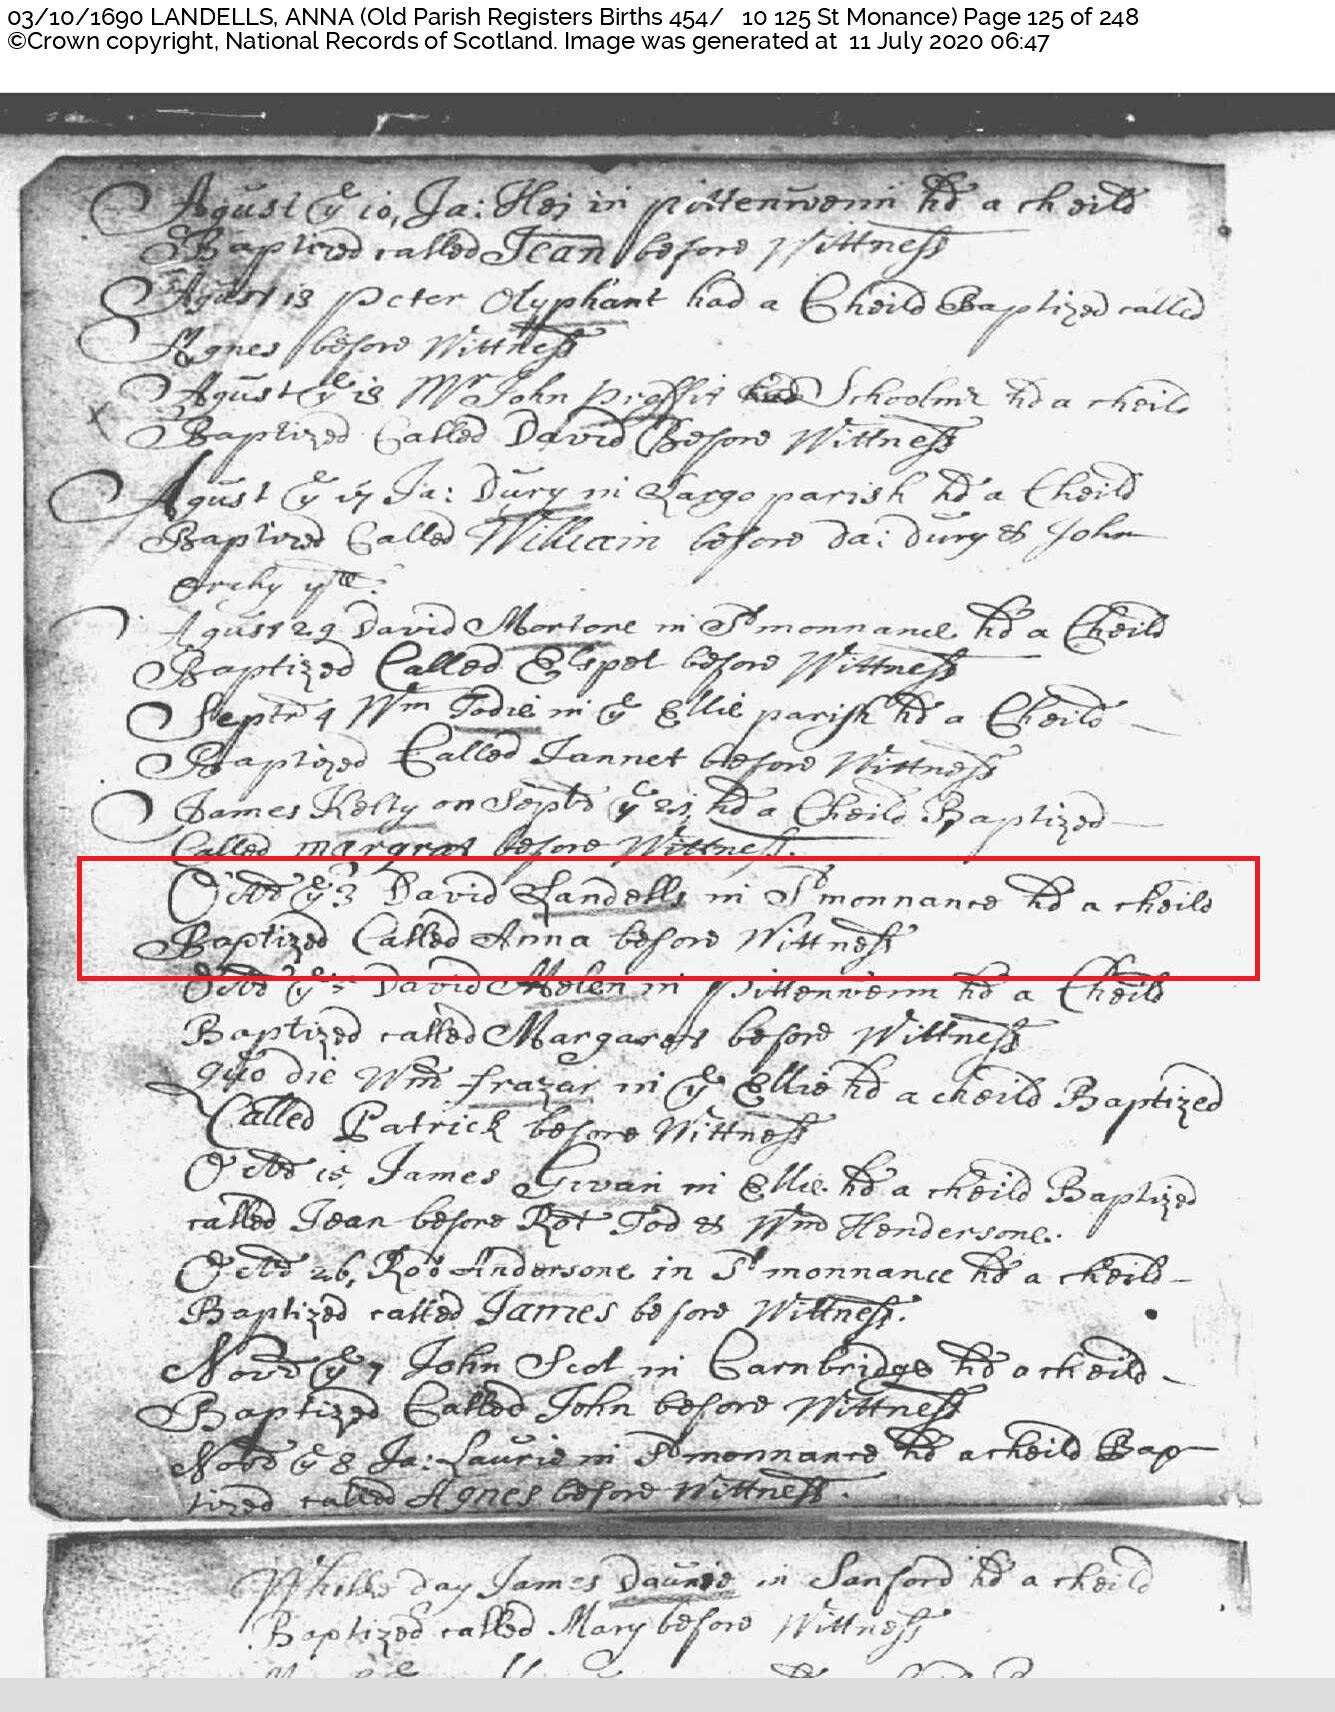 03/10/1690 LANDELLS, ANNA (Old Parish Registers Births 454/ 10 125 St Monance) Page 125 of 248
©Crown copyright, National Records of Scotland. Image was generated at 11 July 2020 06:47
Agust ye 10, Ja: Hej in pittenwemi hd a cheild
Baptized called Jean before Wittness
Agust 13 peter Olyphant had a Cheild Baptized called
Agnes before Wittness
Agust ye 13 Mr John proffit Schoolmr hd a cheild
Baptized Called David Before Wittness
Agust ye 17 Ja: Dury in Largo parish hd a Cheild
Baptized Called William before da: dury & John
Agust 29 David Mortone in St monnance hd a Cheild
Baptized Called Elspet before Wittness
Septr 4 Wm Todie in ye Ellie parish hd a Cheild
Baptized Called Jannet before Wittness
James Kelly on Septbr ye 21, hd a Cheild Baptized
Called margrat before Wittness.
Octbr ye 3 David Landells in St monnance hd a cheild
Baptized Called Anna before Wittness
Octbr ye David Melen in pittenwem hd a Cheild
Baptized called Margaret before Wittness
quo die Wm frazar in ye Ellie hd a cheild Baptized
Called Patrick before Wittness
Octbr 15, James Givan in Ellie hd a cheild Baptized
called Jean before Rot Tod & Wm Hendersone.
Octbr 26, Rob Andersone in St monnance hd a cheild
Baptized called James before Wittness.
Novbr ye 7 John Scot in Carnbridge hd a cheild
Baptized Called John before Wittness
Novbr ye 8 Ja: Laurie in St monnance hd a cheild Bap
tized called Agnes before Wittness.
Whilke day James Daunie in Sanford hd a cheild
Baptized called Mary before Wittness